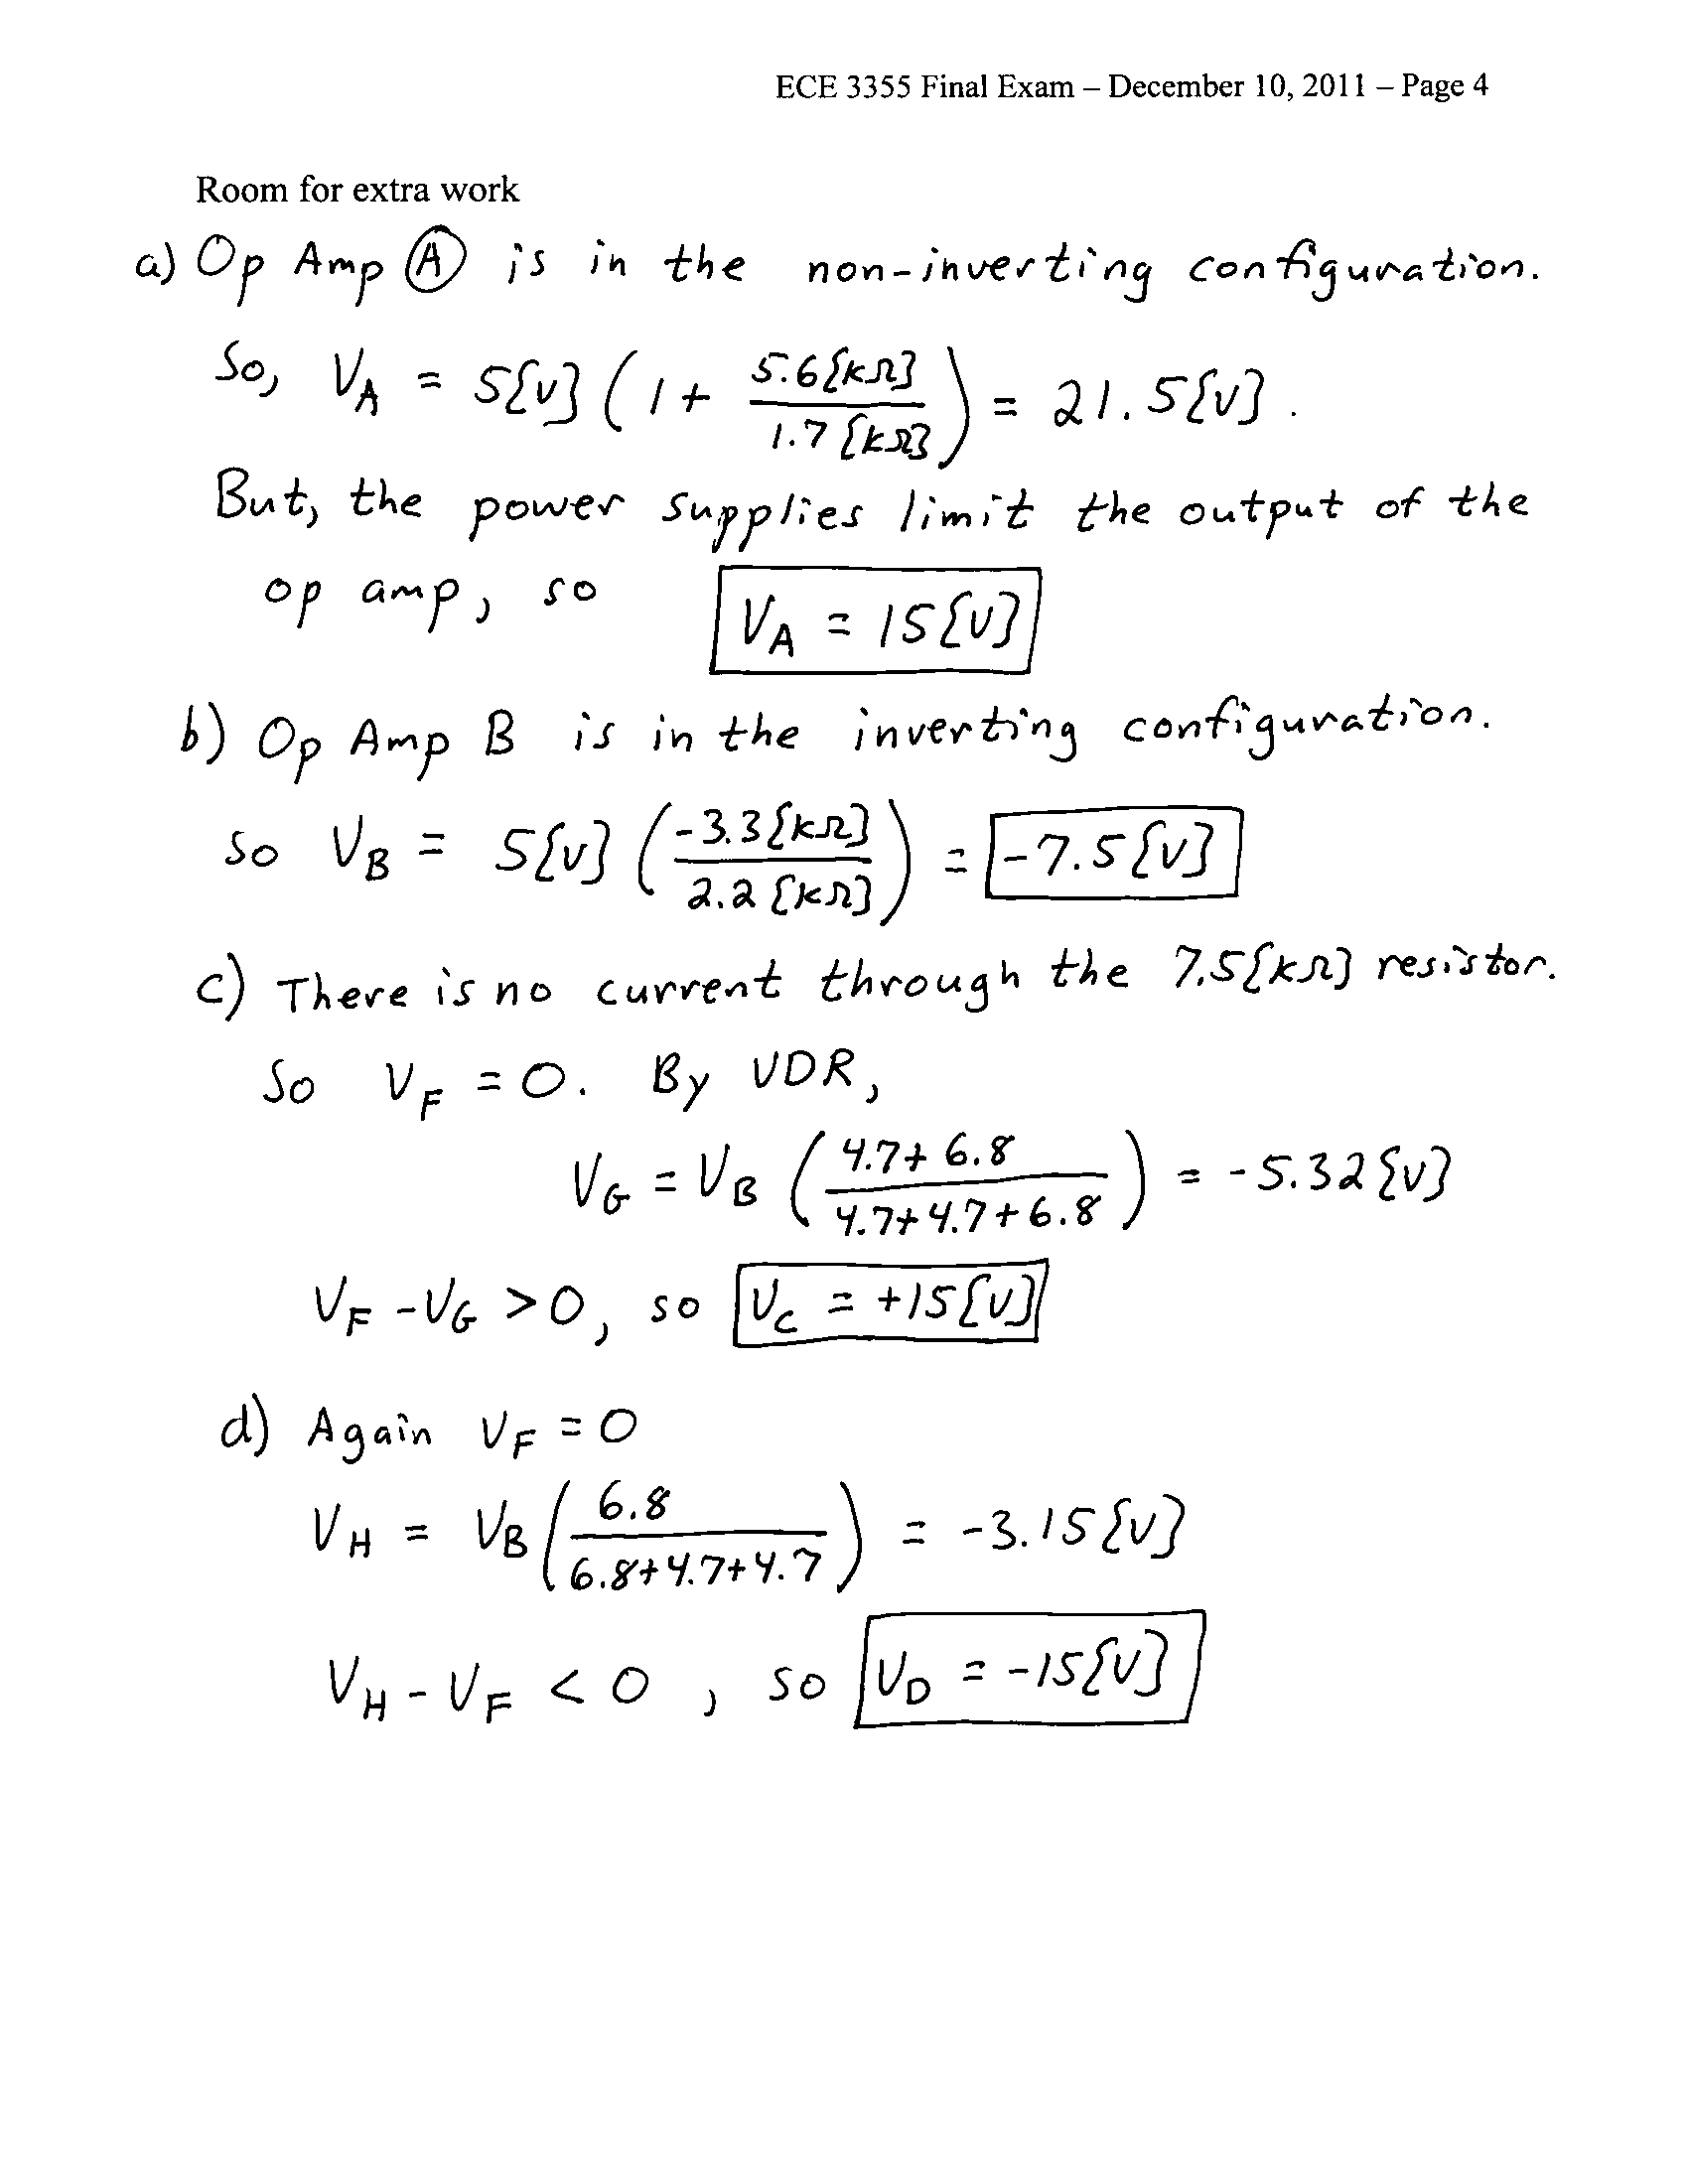 ECE 3355 Final Exam – December 10, 2011 – Page 4
Room for extra work
a) Op Amp Ⓐ is in the non-inverting configuration.
So, V_A = 5{V} (1 + 5.6{kΩ} / 1.7{kΩ}) = 21.5{V}.
But, the power supplies limit the output of the
op amp, so V_A = 15{V}
b) Op Amp B is in the inverting configuration.
so V_B = 5{V} (-3.3{kΩ} / 2.2{kΩ}) = -7.5{V}
c) There is no current through the 7.5{kΩ} resistor.
So V_F = 0. By VDR,
V_G = V_B (4.7+6.8 / 4.7+4.7+6.8) = -5.32{V}
V_F - V_G > 0, so V_C = +15{V}
d) Again V_F = 0
V_H = V_B (6.8 / 6.8+4.7+4.7) = -3.15{V}
V_H - V_F < 0, so V_D = -15{V}